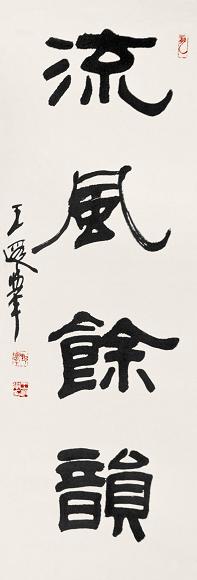 流風餘韻
王遐舉